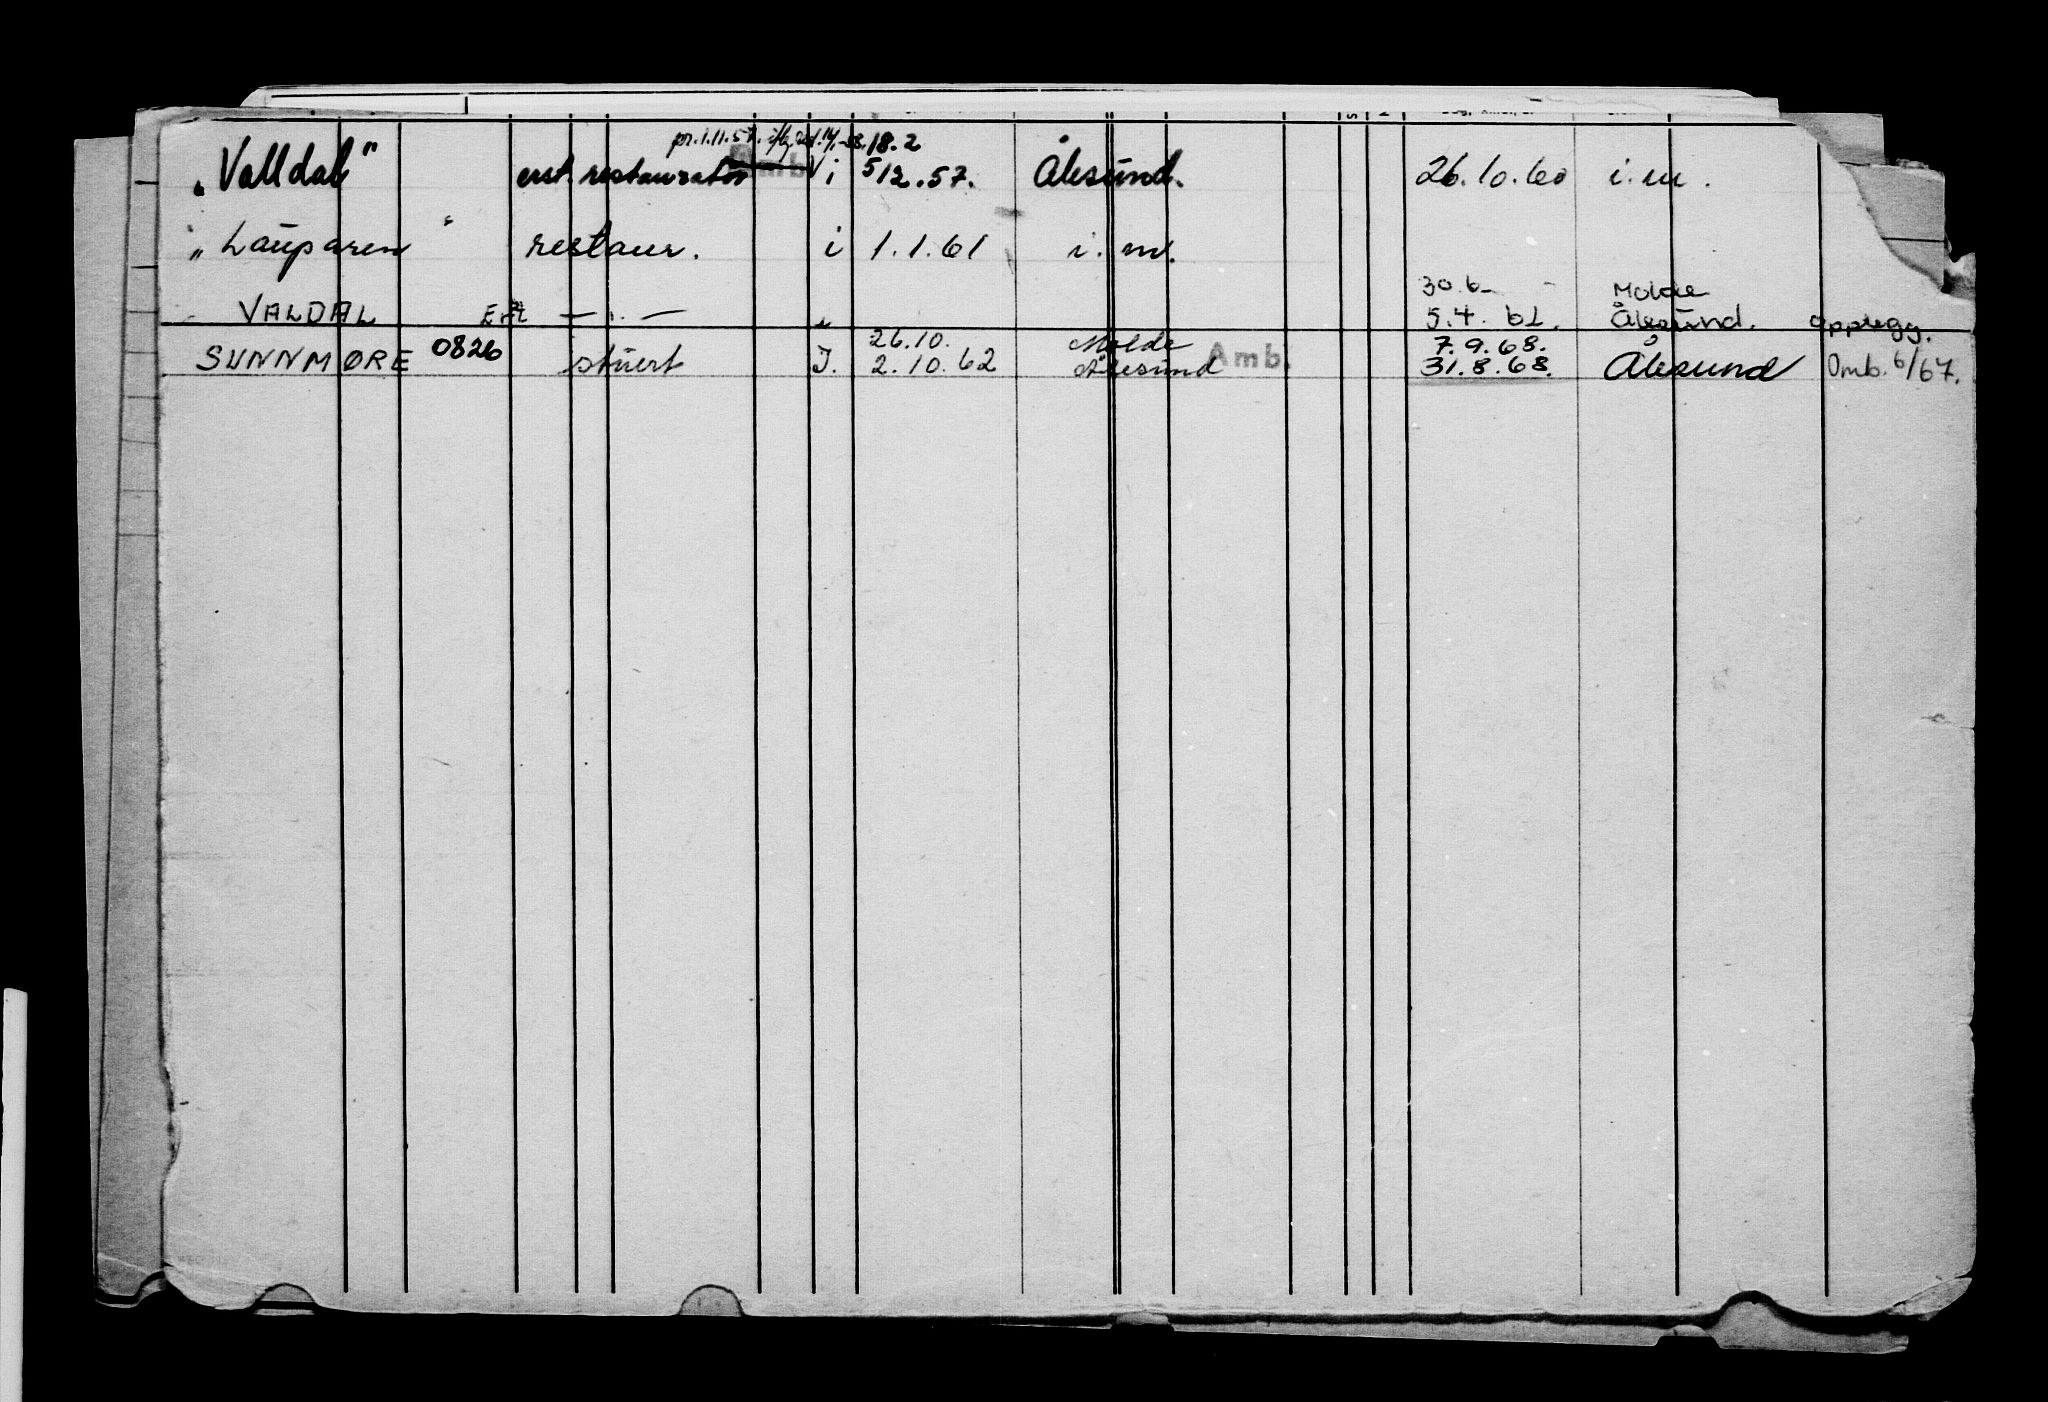 pr. 1.11.57. 18.2
„Valldal" erst. restauratør Amb. i 5/12.57. Ålesund. 26.10.60 i.m.
„Lauparen" restaur. i 1.1.61 i.m.
30.6- - Molde
VALDAL Erst — . — i 5.4.62. Ålesund. Opplegg.
26.10. Molde 7.9.68.
SUNNMØRE 0826 stuert I. 2.10.62 Ålesund Amb. 31.8.68. Ålesund Omb. 6/67.